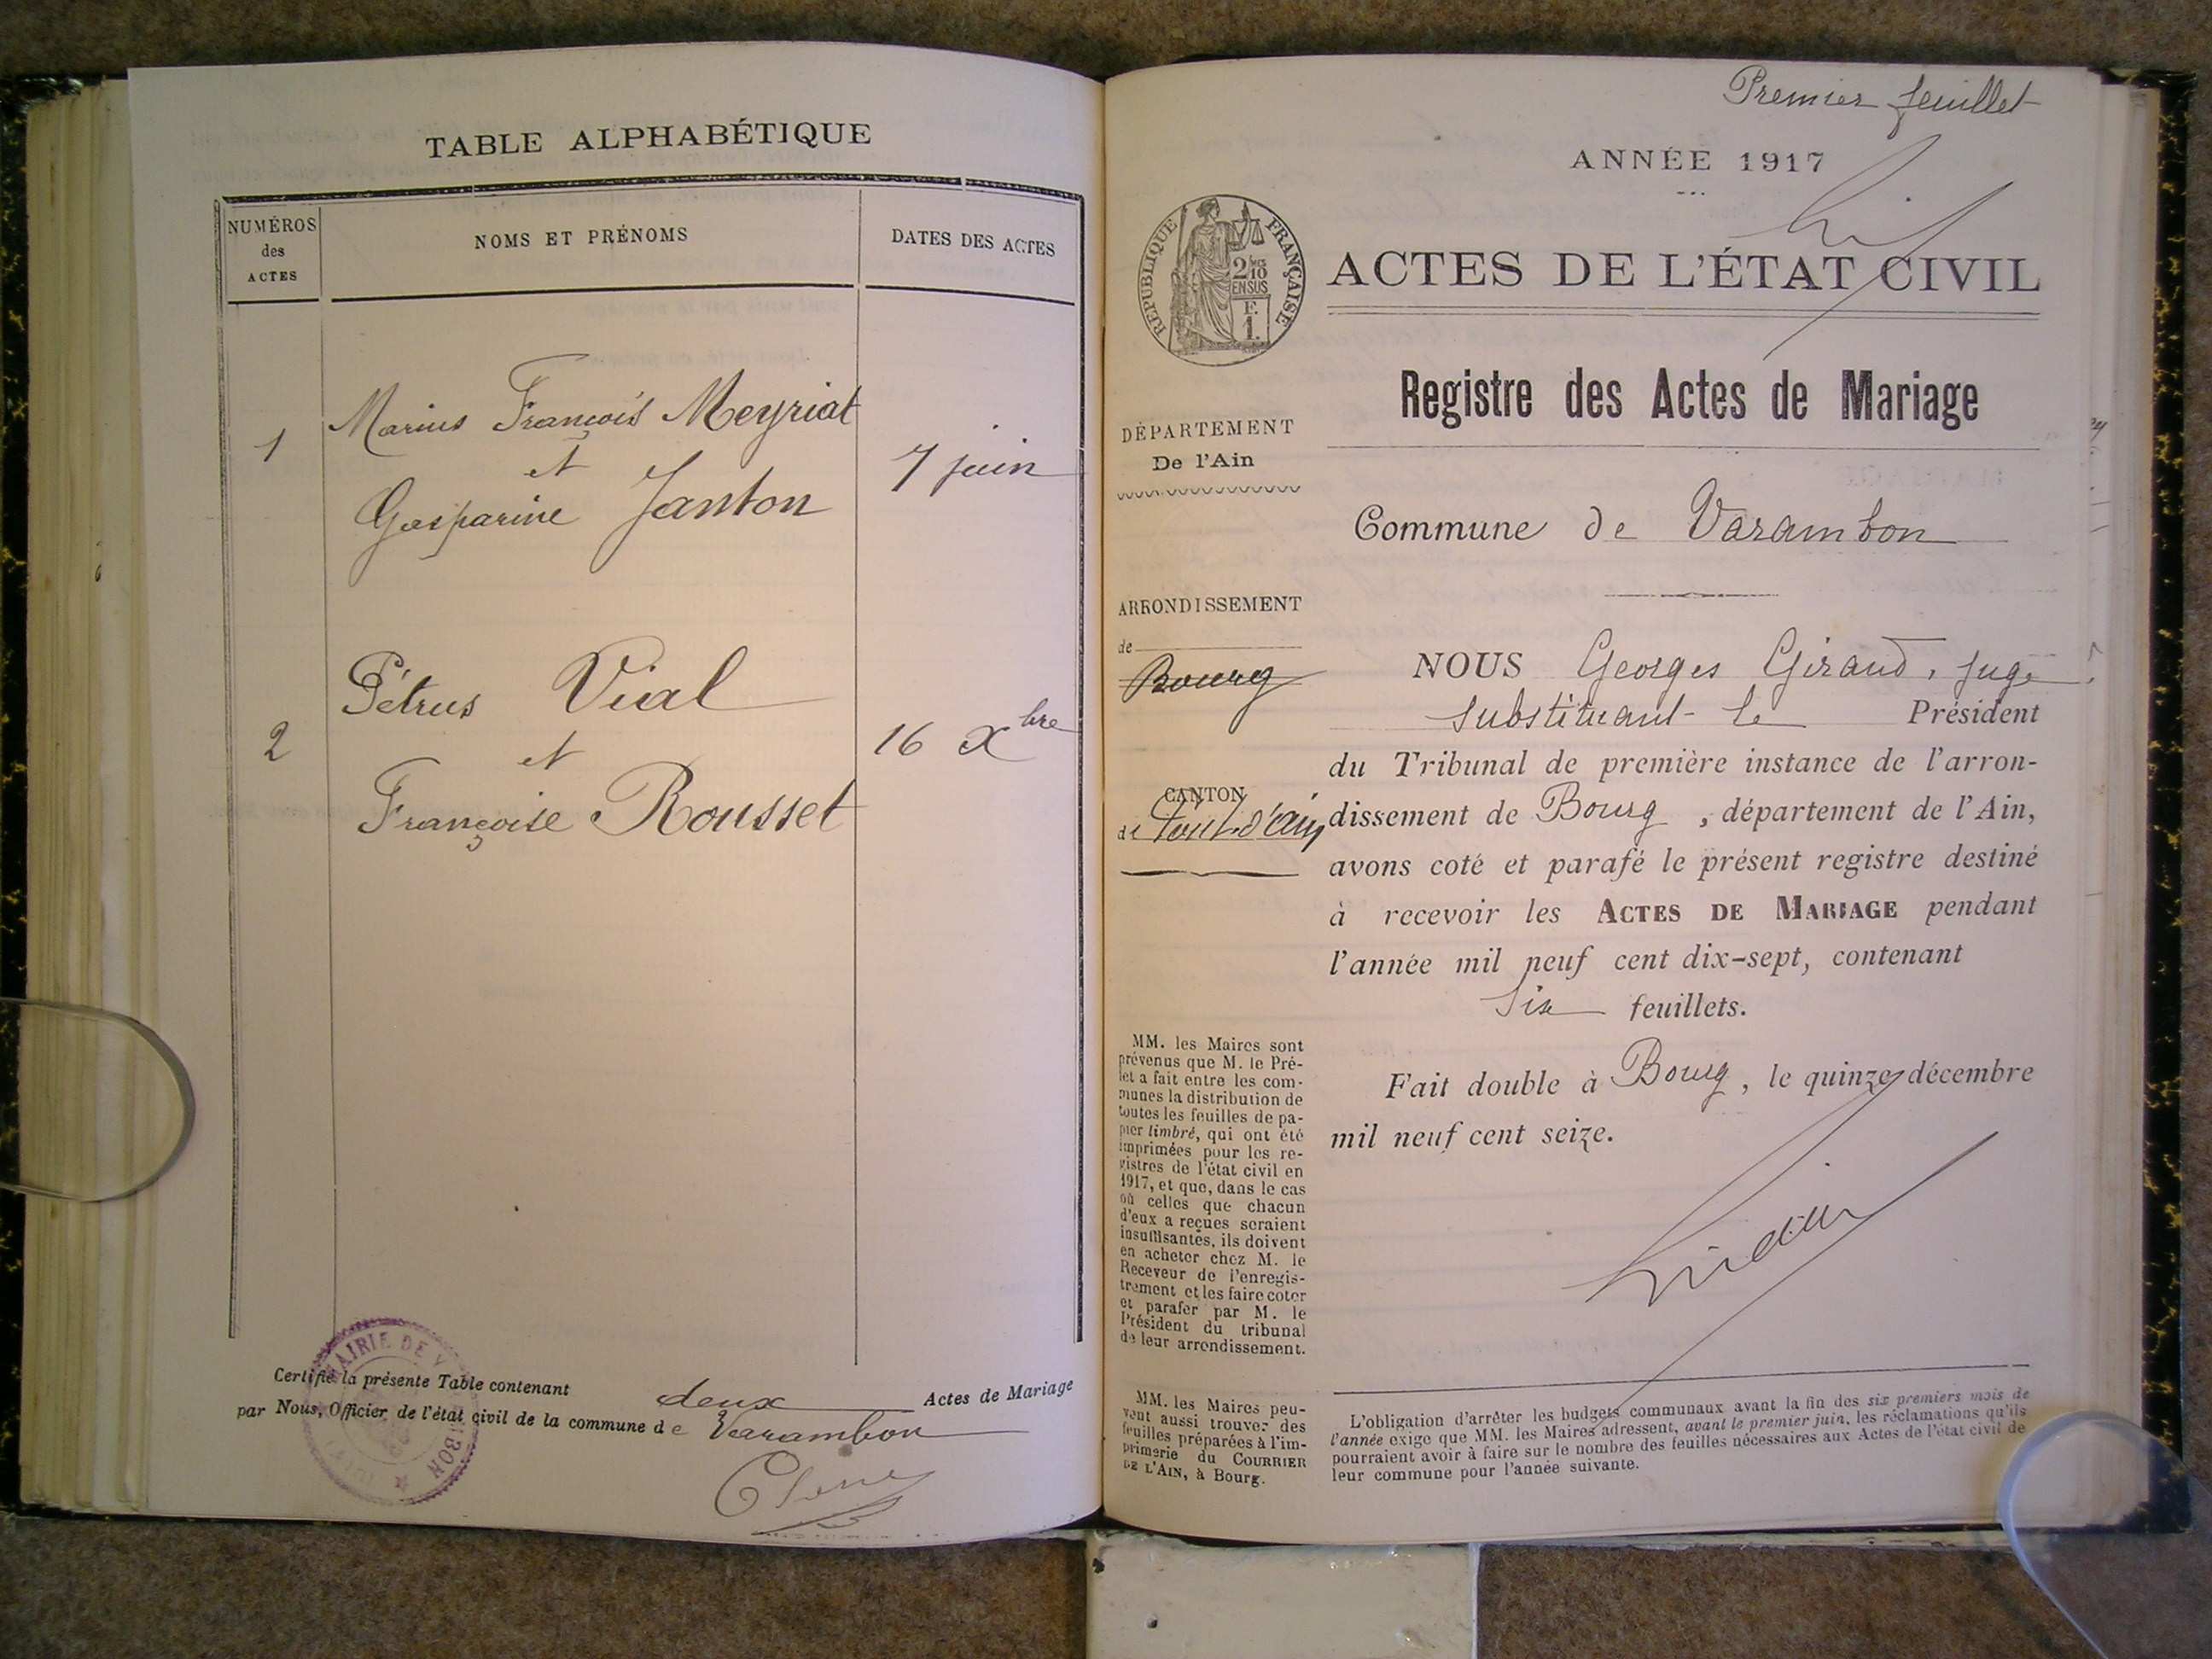 TABLE ALPHABÉTIQUE
NUMÉROS
des
ACTES
NOMS ET PRÉNOMS
DATES DES ACTES
1
Marius François Meyriat
et
Gasparine Janton
7 juin
2
Pétrus Vial
et
Françoise Rousset
16 Xbre
MAIRIE DE V
BON
Certifié la présente Table contenant deux Actes de Mariage
par Nous, Officier de l'état civil de la commune de Varambon
Premier feuillet
ANNÉE 1917
RÉPUBLIQUE FRANÇAISE
2 MES
10
EN SUS
F.
1.
ACTES DE L'ÉTAT CIVIL
Registre des Actes de Mariage
DÉPARTEMENT
De l'Ain
ARRONDISSEMENT
de
Bourg
CANTON
de Pont-d'ain
MM. les Maires sont
prévenus que M. le Pré-
fet a fait entre les com-
munes la distribution de
toutes les feuilles de pa-
pier timbré, qui ont été
imprimées pour les re-
gistres de l'état civil en
1917, et que, dans le cas
où celles que chacun
d'eux a reçues seraient
insuffisantes, ils doivent
en acheter chez M. le
Receveur de l'enregis-
trement et les faire coter
et parafer par M. le
Président du tribunal
de leur arrondissement.
MM. les Maires peu-
vent aussi trouver des
feuilles préparées à l'im-
primerie du COURRIER
DE L'AIN, à Bourg.
Commune de Varambon
NOUS Georges Giraud, juge
substituant le Président
du Tribunal de première instance de l'arron-
dissement de Bourg, département de l'Ain,
avons coté et parafé le présent registre destiné
à recevoir les ACTES DE MARIAGE pendant
l'année mil neuf cent dix-sept, contenant
six feuillets.
Fait double à Bourg, le quinze décembre
mil neuf cent seize.
L'obligation d'arrêter les budgets communaux avant la fin des six premiers mois de
l'année exige que MM. les Maires adressent, avant le premier juin, les réclamations qu'ils
pourraient avoir à faire sur le nombre des feuilles nécessaires aux Actes de l'état civil de
leur commune pour l'année suivante.